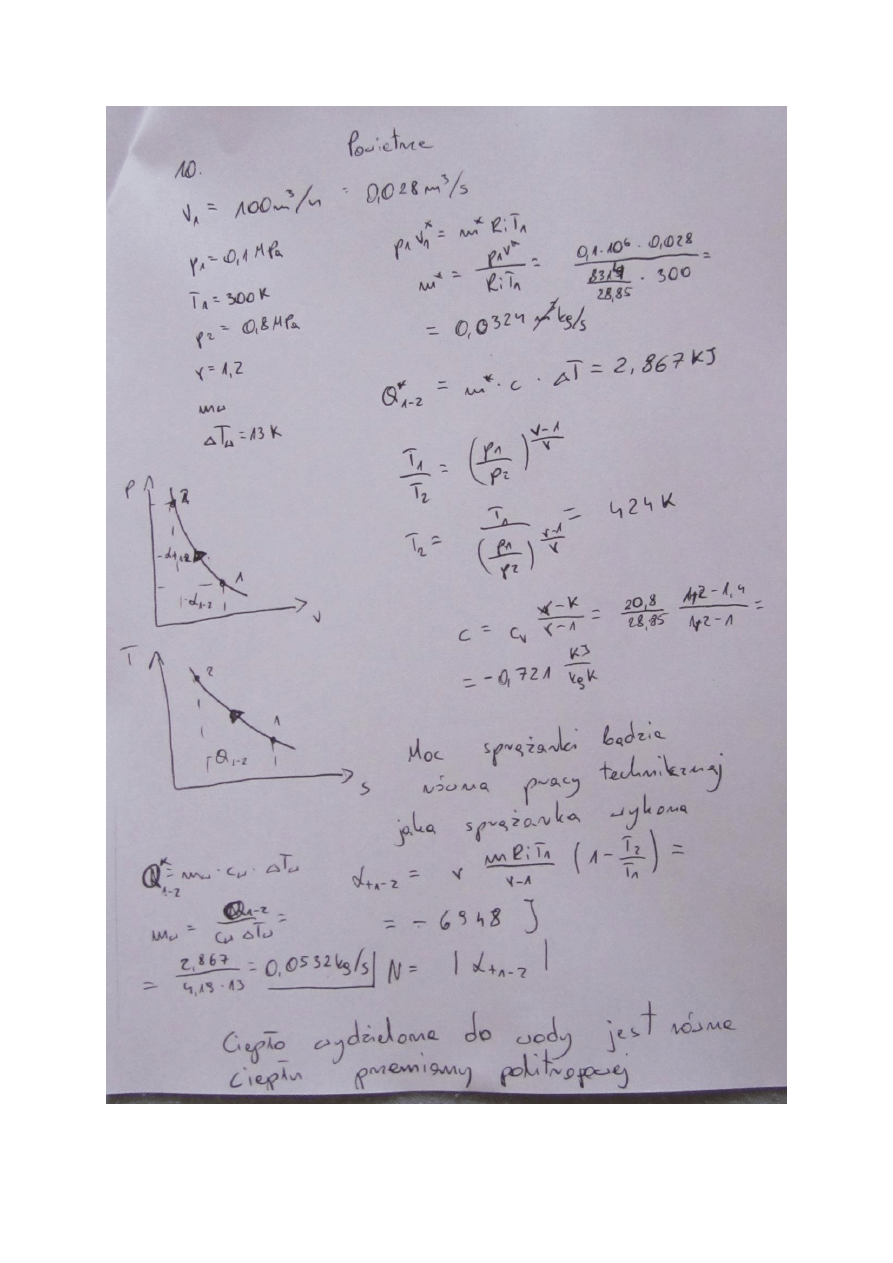 Powietrze
10.
V₁ = 100 m³/h = 0,028 m³/s
p₁ = 0,1 MPa
T₁ = 300 K
p₂ = 0,8 MPa
γ = 1,2
mw
ΔTw = 13 K
p₁V₁* = m* Ri T₁
m* = p₁V* / RiT₁ = 0,1·10⁶ · 0,028 / (8314/28,85 · 300) =
= 0,0324 kg/s
Q*₁₋₂ = m* · c · ΔT = 2,867 KJ
T₁/T₂ = (p₁/p₂)^((γ-1)/γ)
T₂ = T₁ / (p₁/p₂)^((γ-1)/γ) = 424 K
c = cv (γ-K)/(γ-1) = 20,8/28,85 (1,2-1,4)/(1,2-1) =
= -0,721 KJ/kgK
P 2 1 v
Lt12
L₁₋₂
T 2 1 s
Q₁₋₂
Moc sprężarki będzie
równa pracy technicznej
jaką sprężarka wykona
Lt₁₋₂ = γ mRiT₁/(γ-1) (1 - T₂/T₁) =
= - 6948 J
N = |Lt₁₋₂|
Q*₁₋₂ = mw · cw · ΔTw
mw = Q₁₋₂ / cw ΔTw =
= 2,867 / 4,19·13 = 0,0532 kg/s
Ciepło wydzielone do wody jest równe
ciepłu przemiany politropowej